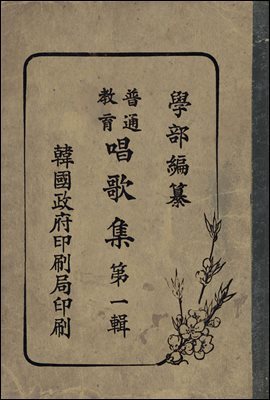 學部編纂
普通
教育
唱歌集 第一輯
韓國政府印刷局印刷